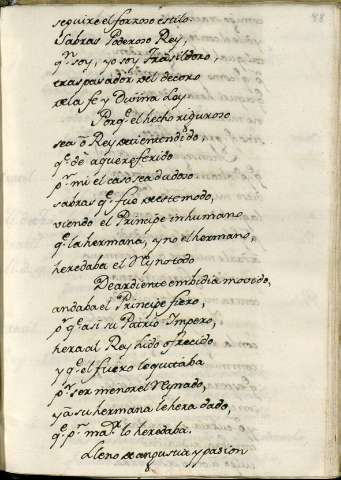 48
seguire el forzoso estilo.
Sabras Poderoso Rey,
q.n soy, yo soy Trasildoro,
traspasador del decoro
de la fe y Divina Ley
Porq.e el hecho riguroso
sea ô Rey de ti entendido,
q.e de aquereferido
p.r mi el caso sea dudoso
sabras q.e fue de este modo,
viendo el Principe inhumano
q.e la hermana, y no el hermano,
heredaba el Reyno todo
De ardiente embidia movido,
andaba el Principe fiero,
p.r q.e asi su Patrio Impero,
hera al Rey hido ofrecido
y q.e el fuero lo quitaba
p.r ser menor el Reynado,
y â su hermana le hera dado,
q.e p.r mā.r lo heredaba.
Lleno de angustia y pasion
8